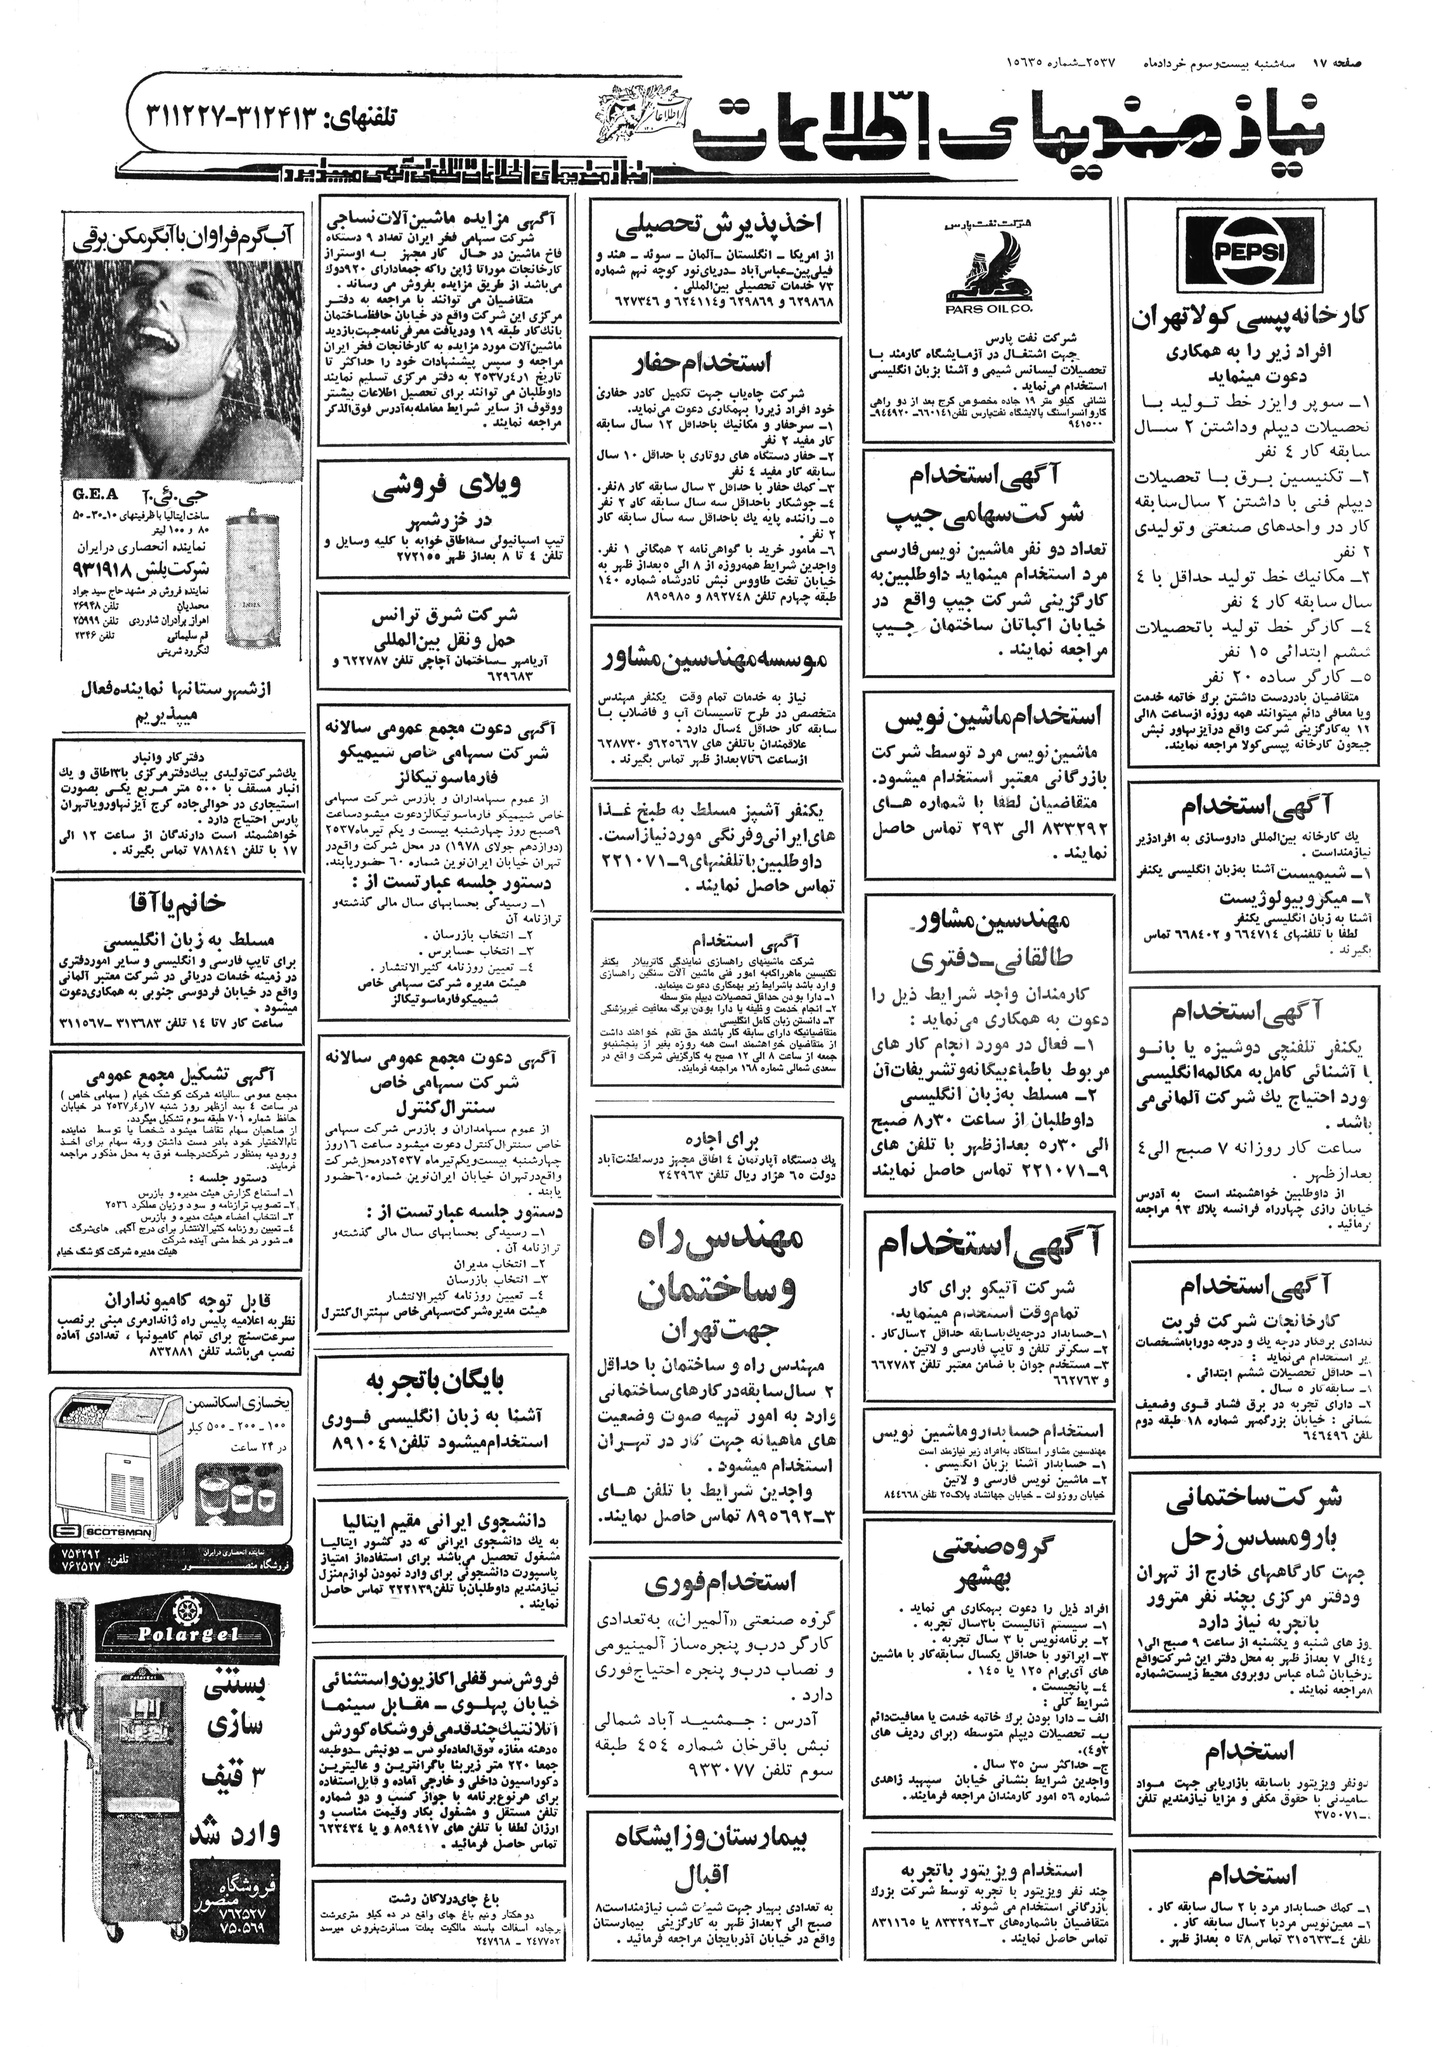 صفحه ۱۷ سه‌شنبه بیست‌وسوم خردادماه ۲۵۳۷ـ شماره ۱۵۶۳۵
نیازمندیهای اطلاعات
تلفنهای: ۳۱۲۴۱۳-۳۱۱۲۲۷
نیازمندیهای اطلاعات تلفنی آگهی میپذیرد
PEPSI
کارخانه پپسی کولا تهران
افراد زیر را به همکاری
دعوت مینماید
۱ـ سوپر وایزر خط تولید با
تحصیلات دیپلم وداشتن ۲ سال
سابقه کار ۴ نفر
۲ـ تکنیسین برق با تحصیلات
دیپلم فنی با داشتن ۲ سال سابقه
کار در واحدهای صنعتی وتولیدی
۲ نفر
۳ـ مکانیك خط تولید حداقل با ۴
سال سابقه کار ۴ نفر
۴ـ کارگر خط تولید باتحصیلات
ششم ابتدائی ۱۵ نفر
۵ـ کارگر ساده ۲۰ نفر
متقاضیان بادردست داشتن برك خاتمه خدمت
ویا معافی دائم میتوانند همه روزه ازساعت ۸الی
۱۲ به‌کارگزینی شرکت واقع درآیزنهاور نبش
جیحون کارخانه پپسی‌کولا مراجعه نمایند.
آگهی استخدام
یك کارخانه بین‌المللی داروسازی به افرادزیر
نیازمنداست .
۱ـ شیمیست آشنا به‌زبان انگلیسی یکنفر
۲ـ میکروبیولوژیست
آشنا به زبان انگلیسی یکنفر
لطفا با تلفنهای ۶۶۴۷۱۴ و ۶۶۸۴۰۲ تماس
بگیرند .
آگهی استخدام
یکنفر تلفنچی دوشیزه یا بانو
با آشنائی کامل به مکالمه انگلیسی
مورد احتیاج یك شرکت آلمانی می
باشد .
ساعت کار روزانه ۷ صبح الی ۴
بعدازظهر .
از داوطلبین خواهشمند است به آدرس
خیابان رازی چهارراه فرانسه پلاك ۹۳ مراجعه
فرمائید .
آگهی استخدام
کارخانجات شرکت فربت
تعدادی برقکار درجه یك و درجه دورابامشخصات
زیر استخدام می‌نماید :
۱ـ حداقل تحصیلات ششم ابتدائی .
۲ـ سابقه کار ۵ سال .
۳ـ دارای تجربه در برق فشار قوی وضعیف
نشانی : خیابان بزرگمهر شماره ۱۸ طبقه دوم
تلفن ۶۴۶۴۹۶
شرکت ساختمانی
بارومسدس زحل
جهت کارگاههای خارج از تهران
ودفتر مرکزی بچند نفر مترور
باتجربه نیاز دارد
روز های شنبه و یکشنبه از ساعت ۹ صبح الی ۱
و۴الی ۷ بعداز ظهر به محل دفتر این شرکت‌واقع
درخیابان شاه عباس روبروی محیط زیست‌شماره
۸مراجعه نمایند .
استخدام
دونفر ویزیتور باسابقه بازاریابی جهت مواد
شامیدنی با حقوق مکفی و مزایا نیازمندیم تلفن
۳۷۵۰۷۱ـ
استخدام
۱ـ کمك حسابدار مرد با ۲ سال سابقه کار .
۲ـ معین‌نویس مردبا ۲سال سابقه کار .
تلفن ۴ـ۳۱۵۶۳۳ تماس ۸تا ۵ بعداز ظهر .
شرکت نفت پارس
PARS OIL CO.
شرکت نفت پارس
جهت اشتغال در آزمایشگاه کارمند با
تحصیلات لیسانس شیمی و آشنا بزبان انگلیسی
استخدام می‌نماید .
نشانی کیلو متر ۱۹ جاده مخصوص کرج بعد از دو راهی
کاروانسراسنگ پالایشگاه نفت‌پارس تلفن۶۶۰۱۴۱ـ ۹۴۴۹۲۰ـ
۹۴۱۵۰۰
آگهی استخدام
شرکت سهامی جیپ
تعداد دو نفر ماشین نویس‌فارسی
مرد استخدام مینماید داوطلبین‌به
کارگزینی شرکت جیپ واقع در
خیابان اکباتان ساختمان جیپ
مراجعه نمایند .
استخدام ماشین نویس
ماشین نویس مرد توسط شرکت
بازرگانی معتبر استخدام میشود.
متقاضیان لطفا با شماره های
۸۳۳۲۹۲ الی ۲۹۳ تماس حاصل
نمایند .
مهندسین مشاور
طالقانی ـ دفتری
کارمندان واجد شرایط ذیل را
دعوت به همکاری می‌نماید :
۱ـ فعال در مورد انجام کار های
مربوط باطباء‌بیگانه و تشریفات آن
۲ـ مسلط به‌زبان انگلیسی
داوطلبان از ساعت ۸٫۳۰ صبح
الی ۵٫۳۰ بعدازظهر با تلفن های
۹ـ۲۲۱۰۷۱ تماس حاصل نمایند
آگهی استخدام
شرکت آتیکو برای کار
تمام‌وقت استخدام مینماید.
۱ـ حسابدار درجه یك باسابقه حداقل ۲سال‌کار .
۲ـ سکرتر تلفن و تایپ فارسی و لاتین .
۳ـ مستخدم جوان با ضامن معتبر تلفن ۶۶۲۷۸۲
و ۶۶۲۷۶۳ .
استخدام حسابدار وماشین نویس
مهندسین مشاور استاکاد به‌افراد زیر نیازمند است
۱ـ حسابدار آشنا بزبان انگلیسی .
۲ـ ماشین نویس فارسی و لاتین
خیابان روزولت ـ خیابان جهانشاد پلاك۲۵ تلفن ۸۴۴۶۶۸
گروه صنعتی
بهشهر
افراد ذیل را دعوت بهمکاری می نماید .
۱ـ سیستم آنالیست با۳سال تجربه .
۲ـ برنامه‌نویس با ۳ سال تجربه .
۳ـ اپراتور با حداقل یکسال سابقه‌کار با ماشین
های آی‌بی‌ام ۱۲۵ یا ۱۴۵ .
۴ـ پانچیست .
شرایط کلی :
الف ـ دارا بودن برك خاتمه خدمت یا معافیت‌دائم
ب ـ تحصیلات دیپلم متوسطه (برای ردیف های
۳و۴).
ج ـ حداکثر سن ۳۵ سال .
واجدین شرایط بنشانی خیابان سپهبد زاهدی
شماره ۵۶ امور کارمندان مراجعه فرمایند.
استخدام ویزیتور باتجربه
چند نفر ویزیتور با تجربه توسط شرکت بزرك
بازرگانی استخدام می شوند .
متقاضیان باشماره‌های ۳ـ۸۳۳۲۹۲ یا ۸۳۱۱۶۵
تماس حاصل نمایند .
اخذ پذیرش تحصیلی
از امریکا - انگلستان -آلمان - سوئد - هند و
فیلی‌پین-عباس‌آباد -دریای‌نور کوچه نهم شماره
۷۳ خدمات تحصیلی بین‌المللی .
۶۲۹۸۶۸ و ۶۲۹۸۶۹ و۶۲۴۱۱۴ و ۶۲۷۳۴۶
استخدام حفار
شرکت چاه‌یاب جهت تکمیل کادر حفاری
خود افراد زیررا بهمکاری دعوت می‌نماید.
۱ـ سرحفار و مکانیك باحداقل ۱۲ سال سابقه
کار مفید ۲ نفر
۲ـ حفار دستگاه های روتاری با حداقل ۱۰ سال
سابقه کار مفید ۴ نفر
۳ـ کمك حفار با حداقل ۳ سال سابقه کار ۸نفر.
۴ـ جوشکار باحداقل سه سال سابقه کار ۲ نفر
۵ـ راننده پایه یك باحداقل سه سال سابقه کار
۲ نفر .
۶ـ مامور خرید با گواهی‌نامه ۲ همگانی ۱ نفر.
واجدین شرایط همه‌روزه از ۸ الی ۵بعداز ظهر به
خیابان تخت طاووس نبش نادرشاه شماره ۱۴۰
طبقه چهارم تلفن ۸۹۲۷۴۸ و ۸۹۵۹۸۵
موسسه مهندسین مشاور
نیاز به خدمات تمام وقت یکنفر مهندس
متخصص در طرح تاسیسات آب و فاضلاب با
سابقه کار حداقل ۴سال دارد .
علاقمندان باتلفن های ۶۲۵۶۶۷و ۶۲۸۷۳۰
ازساعت ۶تا۷بعداز ظهر تماس بگیرند .
یکنفر آشپز مسلط به طبخ غذا
های ایرانی وفرنگی موردنیازاست.
داوطلبین با تلفنهای ۹ـ۲۲۱۰۷۱
تماس حاصل نمایند .
آگهی استخدام
شرکت ماشینهای راهسازی نمایندگی کاترپیلار یکنفر
تکنیسین ماهرراکه‌به امور فنی ماشین آلات سنگین راهسازی
وارد باشد باشرایط زیر بهمکاری دعوت مینماید.
۱ـ دارا بودن حداقل تحصیلات دیپلم متوسطه
۲ـ انجام خدمت وظیفه یا دارا بودن برگ معافیت غیرپزشکی
۳ـ دانستن زبان کامل انگلیسی
متقاضیانیکه دارای سابقه کار باشند حق تقدم خواهند داشت
از متقاضیان خواهشمند است همه روزه بغیر از پنجشنبه‌و
جمعه از ساعت ۸ الی ۱۲ صبح به کارگزینی شرکت واقع در
سعدی شمالی شماره ۱۶۸ مراجعه فرمایند.
برای اجاره
یك دستگاه آپارتمان ۴ اطاق مجهز درسلطنت‌آباد
دولت ۶۵ هزار ریال تلفن ۲۴۲۹۶۳
مهندس راه
وساختمان
جهت تهران
مهندس راه و ساختمان با حداقل
۲ سال سابقه درکارهای ساختمانی
وارد به امور تهیه صوت وضعیت
های ماهیانه جهت کار در تهران
استخدام میشود .
واجدین شرایط با تلفن های
۳ـ۸۹۵۶۹۲ تماس حاصل نمایند.
استخدام فوری
گروه صنعتی «آلمیران» به‌تعدادی
کارگر درب‌و پنجره‌ساز آلمینیومی
و نصاب درب‌و پنجره احتیاج فوری
دارد .
آدرس : جمشید آباد شمالی
نبش باقرخان شماره ۴۵۴ طبقه
سوم تلفن ۹۳۳۰۷۷
بیمارستان وزایشگاه
اقبال
به تعدادی بهیار جهت شیفت شب نیازمنداست۸
صبح الی ۲بعداز ظهر به کارگزینی بیمارستان
واقع در خیابان آذربایجان مراجعه فرمائید .
آگهی مزایده ماشین آلات نساجی
شرکت سهامی فخر ایران تعداد ۹ دستگاه
فاخ ماشین در حال کار مجهز به اوستراز
کارخانجات موراتا ژاپن راکه جمعادارای ۹۲۰دوك
می‌باشد از طریق مزایده بفروش می رساند .
متقاضیان می توانند با مراجعه به دفتر
مرکزی این شرکت واقع در خیابان حافظ‌ساختمان
بانك‌کار طبقه ۱۹ ودریافت معرفی‌نامه‌جهت‌بازدید
ماشین‌آلات مورد مزایده به کارخانجات فخر ایران
مراجعه و سپس پیشنهادات خود را حداکثر تا
تاریخ ۲۵۳۷٫۴٫۱ به دفتر مرکزی تسلیم نمایند
داوطلبان می توانند برای تحصیل اطلاعات بیشتر
ووقوف از سایر شرایط معامله‌به‌آدرس فوق‌الذکر
مراجعه نمایند .
ویلای فروشی
در خزرشهر
تیپ اسپانیولی سه‌اطاق خوابه با کلیه وسایل و
تلفن ۴ تا ۸ بعداز ظهر ۲۷۲۱۵۵
شرکت شرق ترانس
حمل و نقل بین‌المللی
آریامهر -ساختمان آچاچی تلفن ۶۲۲۷۸۷ و
۶۲۹۶۸۳
آگهی دعوت مجمع عمومی سالانه
شرکت سهامی خاص شیمیکو
فارماسوتیکالز
از عموم سهامداران و بازرس شرکت سهامی
خاص شیمیکو فارماسوتیکالزدعوت میشودساعت
۹صبح روز چهارشنبه بیست و یکم تیرماه ۲۵۳۷
(دوازدهم جولای ۱۹۷۸) در محل شرکت واقع‌در
تهران خیابان ایران‌نوین شماره ۶۰ حضوریابند.
دستور جلسه عبارتست از :
۱ـ رسیدگی بحسابهای سال مالی گذشته‌و
ترازنامه آن
۲ـ انتخاب بازرسان .
۳ـ انتخاب حسابرس .
۴ـ تعیین روزنامه کثیرالانتشار .
هیئت مدیره شرکت سهامی خاص
شیمیکوفارماسوتیکالز
آگهی دعوت مجمع عمومی سالانه
شرکت سهامی خاص
سنترال کنترل
از عموم سهامداران و بازرس شرکت سهامی
خاص سنترال‌کنترل دعوت میشود ساعت ۱۶روز
چهارشنبه بیست‌ویکم‌تیر ماه ۲۵۳۷درمحل‌شرکت
واقع‌درتهران خیابان ایران‌نوین شماره۶۰حضور
یابند .
دستور جلسه عبارتست از :
۱ـ رسیدگی بحسابهای سال مالی گذشته‌و
ترازنامه آن .
۲ـ انتخاب مدیران
۳ـ انتخاب بازرسان
۴ـ تعیین روزنامه کثیرالانتشار
هیئت مدیره‌شرکت‌سهامی‌خاص سنترال‌کنترل
بایگان باتجربه
آشنا به زبان انگلیسی فوری
استخدام میشود تلفن ۸۹۱۰۴۱
دانشجوی ایرانی مقیم ایتالیا
به یك دانشجوی ایرانی که در کشور ایتالیا
مشغول تحصیل می‌باشد برای استفاده‌از امتیاز
پاسپورت دانشجوئی برای وارد نمودن لوازم‌منزل
نیازمندیم داوطلبان‌با تلفن ۲۲۲۱۳۹ تماس حاصل
نمایند .
فروش سرقفلی اکازیون واستثنائی
خیابان پهلوی ـ مقابل سینما
آتلانتیك چندقدمی فروشگاه کورش
۵دهنه مغازه فوق‌العاده‌لوکس - دونبش -دوطبقه
جمعا ۲۲۰ متر زیربنا باگرانترین و عالیترین
دکوراسیون داخلی و خارجی آماده و قابل‌استفاده
برای هرنوع‌برنامه با جواز کسب و دو شماره
تلفن مستقل و مشغول بکار وقیمت مناسب و
ارزان لطفا با تلفن های ۸۵۹۴۱۷ و یا ۶۲۳۴۳۴
تماس حاصل فرمائید .
باغ چای‌درلاکان رشت
دوهکتار ونیم باغ چای واقع در ده کیلو متری‌رشت
برجاده اسفالت باسند مالکیت بعلت مسافرت‌بفروش میرسد
۲۴۷۷۵۲ - ۲۴۷۹۶۸
آب گرم فراوان با آبگرمکن برقی
جی.ئی.آ G.E.A
ساخت ایتالیا با ظرفیتهای ۱۰-۳۰-۵۰
۸۰ و ۱۰۰ لیتر
نماینده انحصاری درایران
شرکت پلش ۹۳۱۹۱۸
نماینده فروش در مشهد حاج سید جواد
محمدیان تلفن ۲۶۹۴۸
اهواز برادران شاوردی تلفن ۲۵۹۹۹
قم سلیمانی تلفن ۲۳۴۶
لنگرود شرینی
ازشهرستانها نماینده فعال
میپذیریم
دفترکار وانبار
یك‌شرکت‌تولیدی بیك‌دفترمرکزی با۱۳اطاق و یك
انبار مسقف با ۵۰۰ متر مربع یکی بصورت
استیجاری در حوالی‌جاده کرج آیزنهاورویاتهران
پارس احتیاج دارد .
خواهشمند است دارندگان از ساعت ۱۲ الی
۱۷ با تلفن ۷۸۱۸۴۱ تماس بگیرند .
خانم یا آقا
مسلط به زبان انگلیسی
برای تایپ فارسی و انگلیسی و سایر اموردفتری
در زمینه خدمات دریائی در شرکت معتبر آلمانی
واقع در خیابان فردوسی جنوبی به همکاری‌دعوت
میشود .
ساعت کار ۷تا ۱۴ تلفن ۳۱۳۶۸۳ ـ۳۱۱۵۶۷
آگهی تشکیل مجمع عمومی
مجمع عمومی سالیانه شرکت کوشك خیام ( سهامی خاص )
در ساعت ۴ بعد ازظهر روز شنبه ۲۵۳۷٫۴٫۱۷ در خیابان
حافظ شماره ۷۰۱ طبقه سوم تشکیل میگردد.
از صاحبان سهام تقاضا میشود شخصا یا توسط نماینده
تام‌الاختیار خود بادر دست داشتن ورقه سهام برای اخذ
ورودیه بمنظور شرکت‌درجلسه فوق به محل مذکور مراجعه
فرمایند.
دستور جلسه :
۱ـ استماع گزارش هیئت مدیره و بازرس
۲ـ تصویب ترازنامه و سود و زیان عملکرد ۲۵۳۶
۳ـ انتخاب اعضاء هیئت مدیره و بازرس
۴ـ تعیین روزنامه کثیرالانتشار برای درج آگهی های‌شرکت
۵ـ شور در خط مشی آینده شرکت
هیئت مدیره شرکت کوشک خیام
قابل توجه کامیونداران
نظربه اعلامیه پلیس راه ژاندارمری مبنی برنصب
سرعت‌سنج برای تمام کامیونها ، تعدادی آماده
نصب می‌باشد تلفن ۸۳۲۸۸۱
یخسازی اسکاتسمن
۱۰۰ - ۲۰۰ - ۵۰۰ کیلو
در ۲۴ ساعت
SCOTSMAN
نماینده انحصاری درایران
فروشگاه منصور
تلفن: ۷۵۴۲۹۲
۷۶۲۵۲۷
Polargel
بستنی
سازی
۳ قیف
وارد شد
فروشگاه
منصور
۷۶۲۵۲۷
۷۵۰۵۶۹